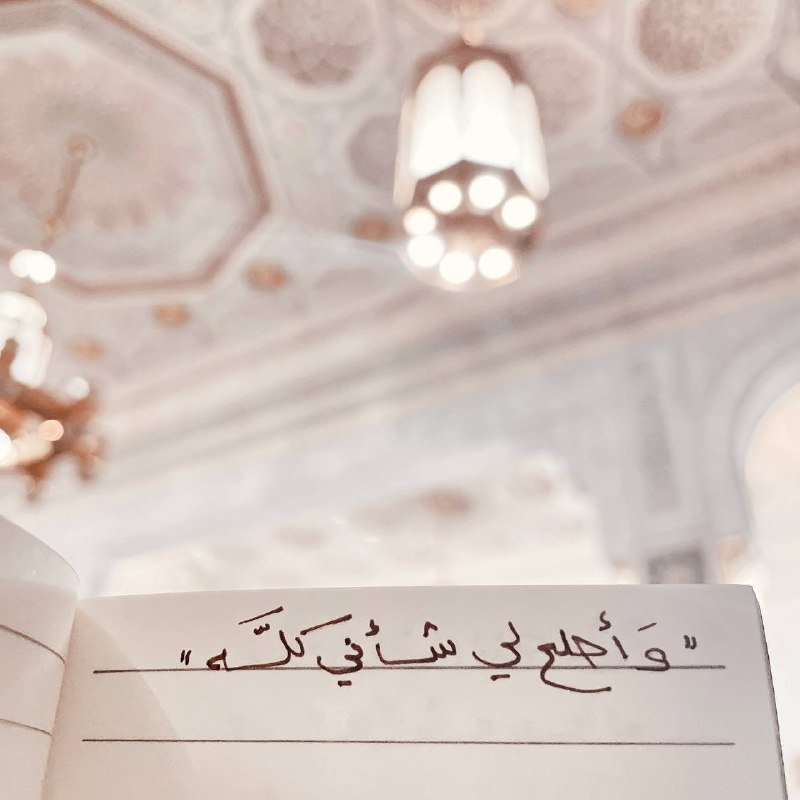 "وَ أصلح لي شأني كلَّه"